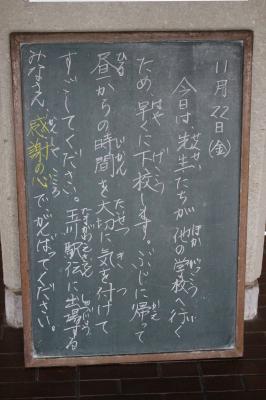 11月22日(金)
今日は、先生たちが他の学校へ行く
ため、早くに下校します。ぶじに帰って
昼からの時間を大切に気を付けて
すごしてください。玉川駅伝に出場する
みなさん、感謝の心でがんばってください。